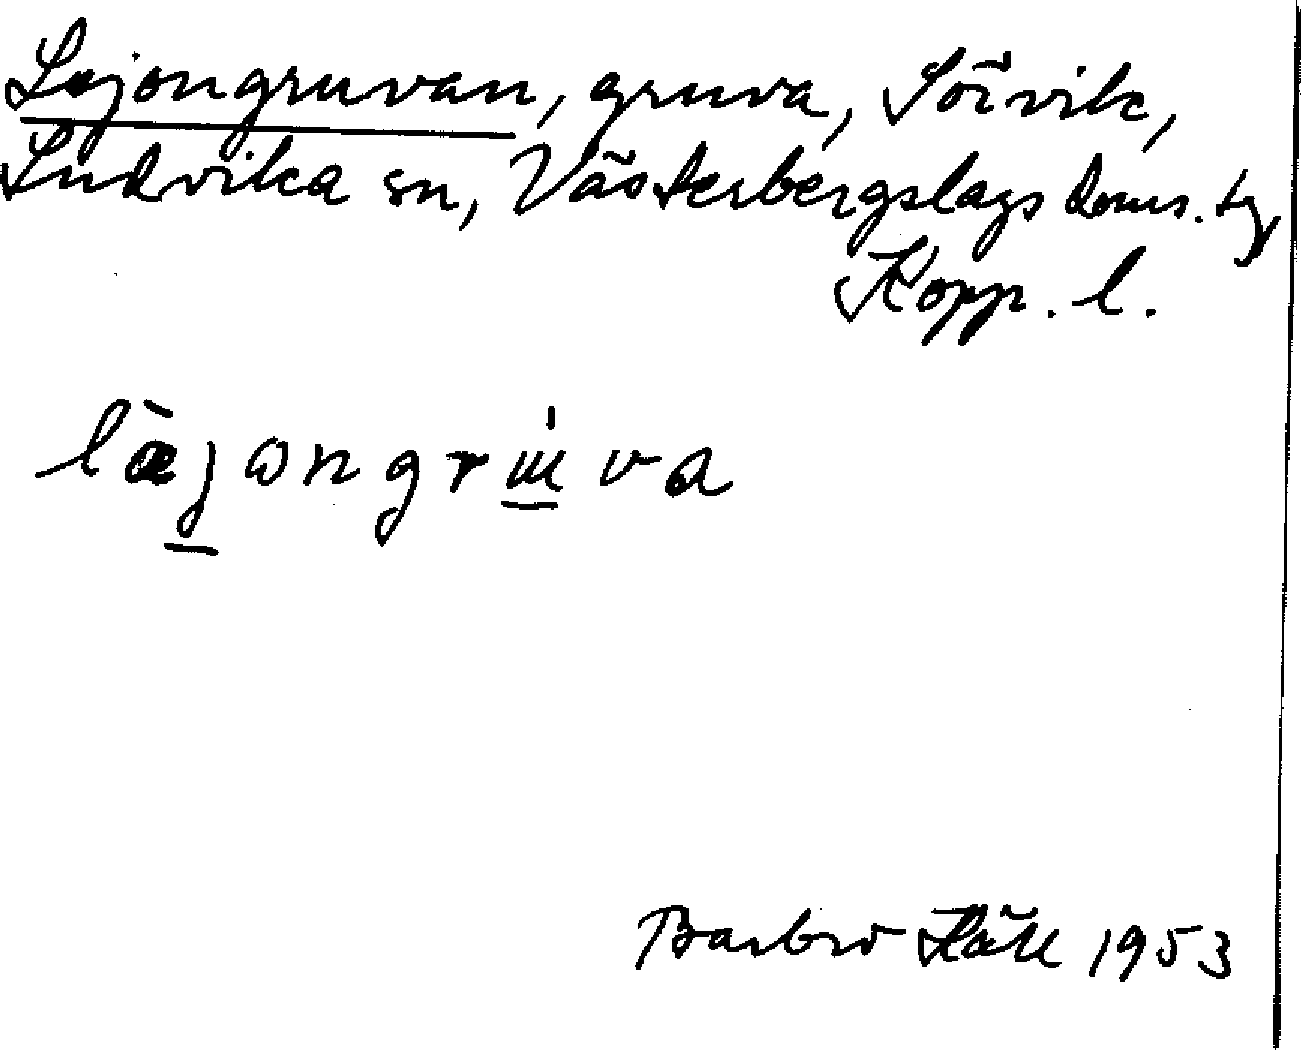 Lejongruvan, gruva, Sörvik,
Ludvika sn, Västerbergslags doms. tg
Kopp. l.
læ̀jongruva
Barbro 1953